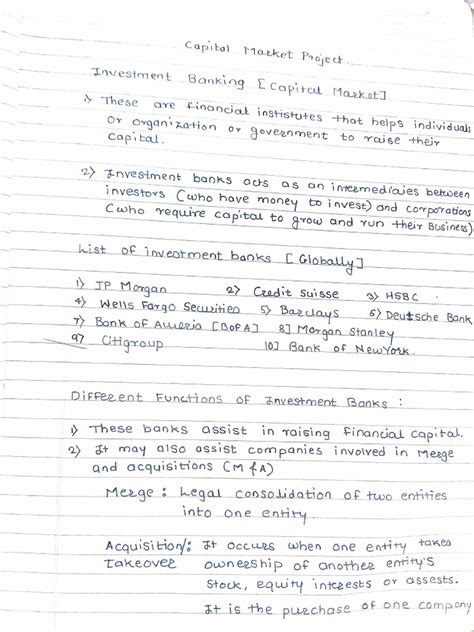 Capital Market Project.
Investment Banking [Capital Market]
1) These are financial institutes that helps individuals
or organization or government to raise their
capital.
2) Investment banks acts as an intermediaies between
investors (who have money to invest) and corporations
(who require capital to grow and run their Business)
List of investment banks [Globally]
1) JP Morgan 2) Credit Suisse 3) HSBC
4) Wells Fargo Securities 5) Barclays 6) Deutsche Bank
7) Bank of Ameria [BofA] 8] Morgan Stanley
9] Citigroup 10] Bank of NewYork.
Different Functions of Investment Banks :
1) These banks assist in raising financial capital.
2) It may also assist companies involved in Merge
and acquisitions (M & A)
Merge : Legal consolidation of two entities
into one entity.
Acquisition/: It occurs when one entity takes
Takeover ownership of another entity's
stock, equity interests or assests.
It is the purchase of one company